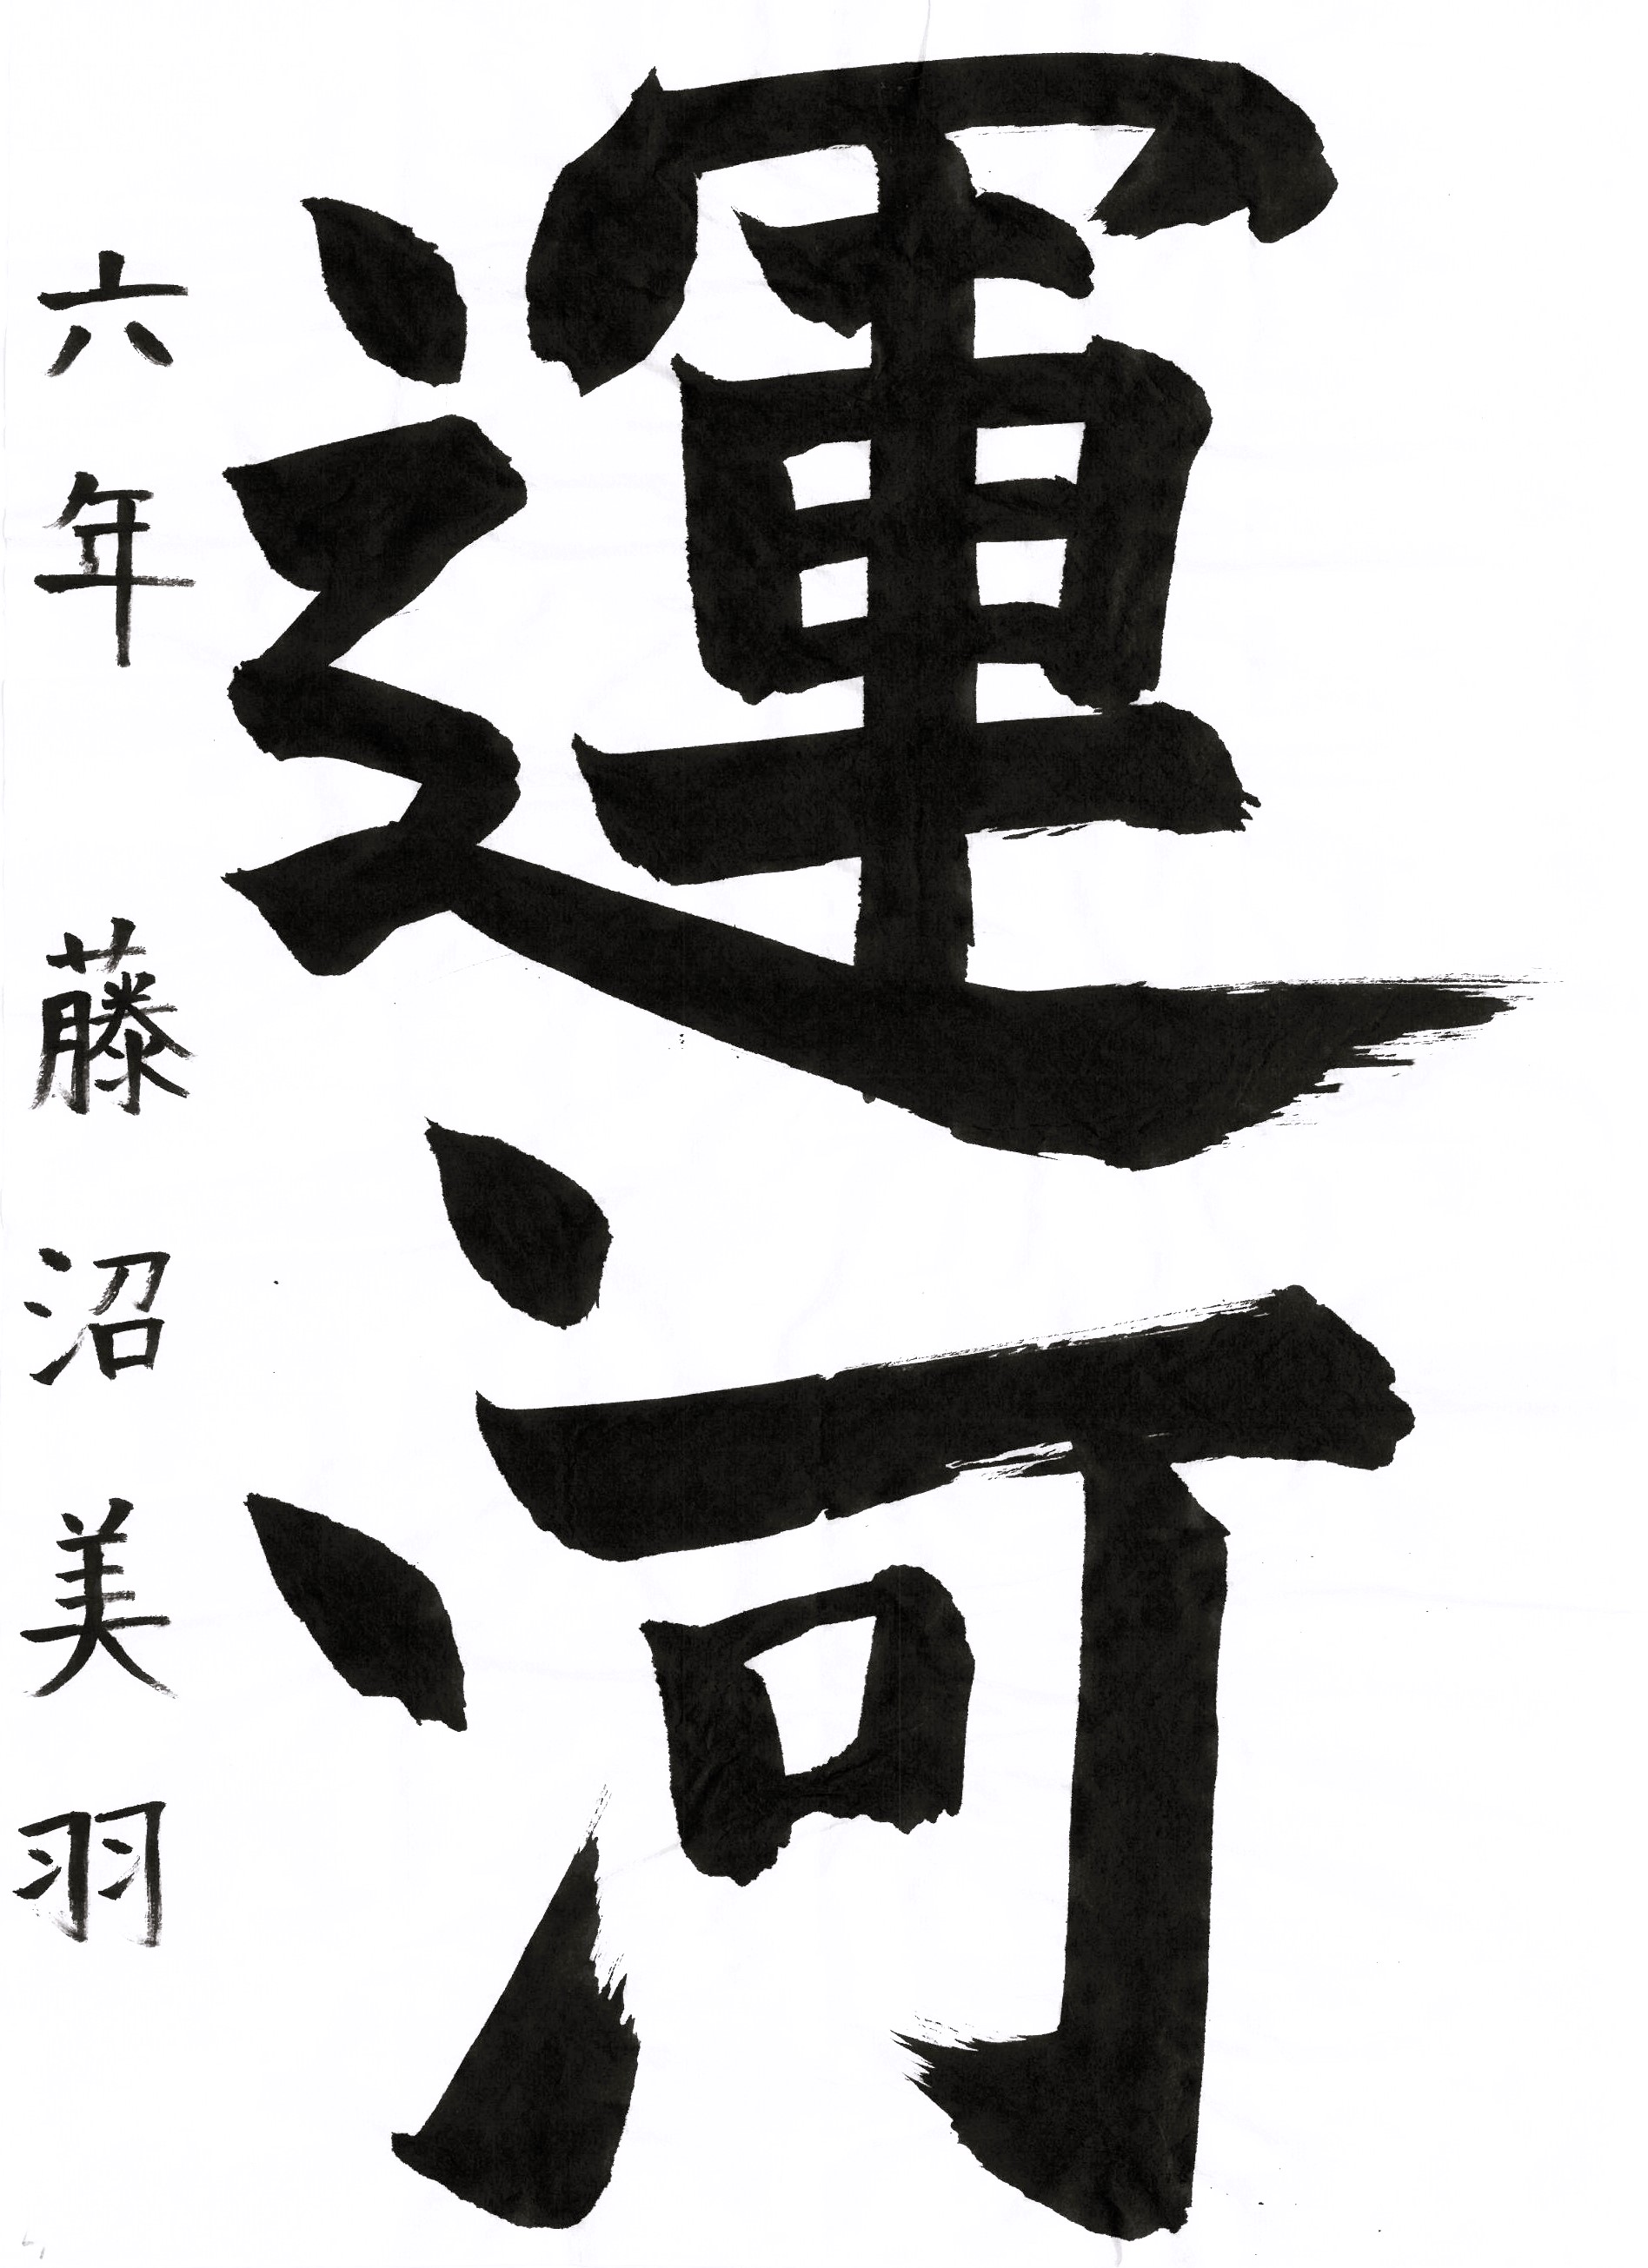 運河
六年 藤沼美羽